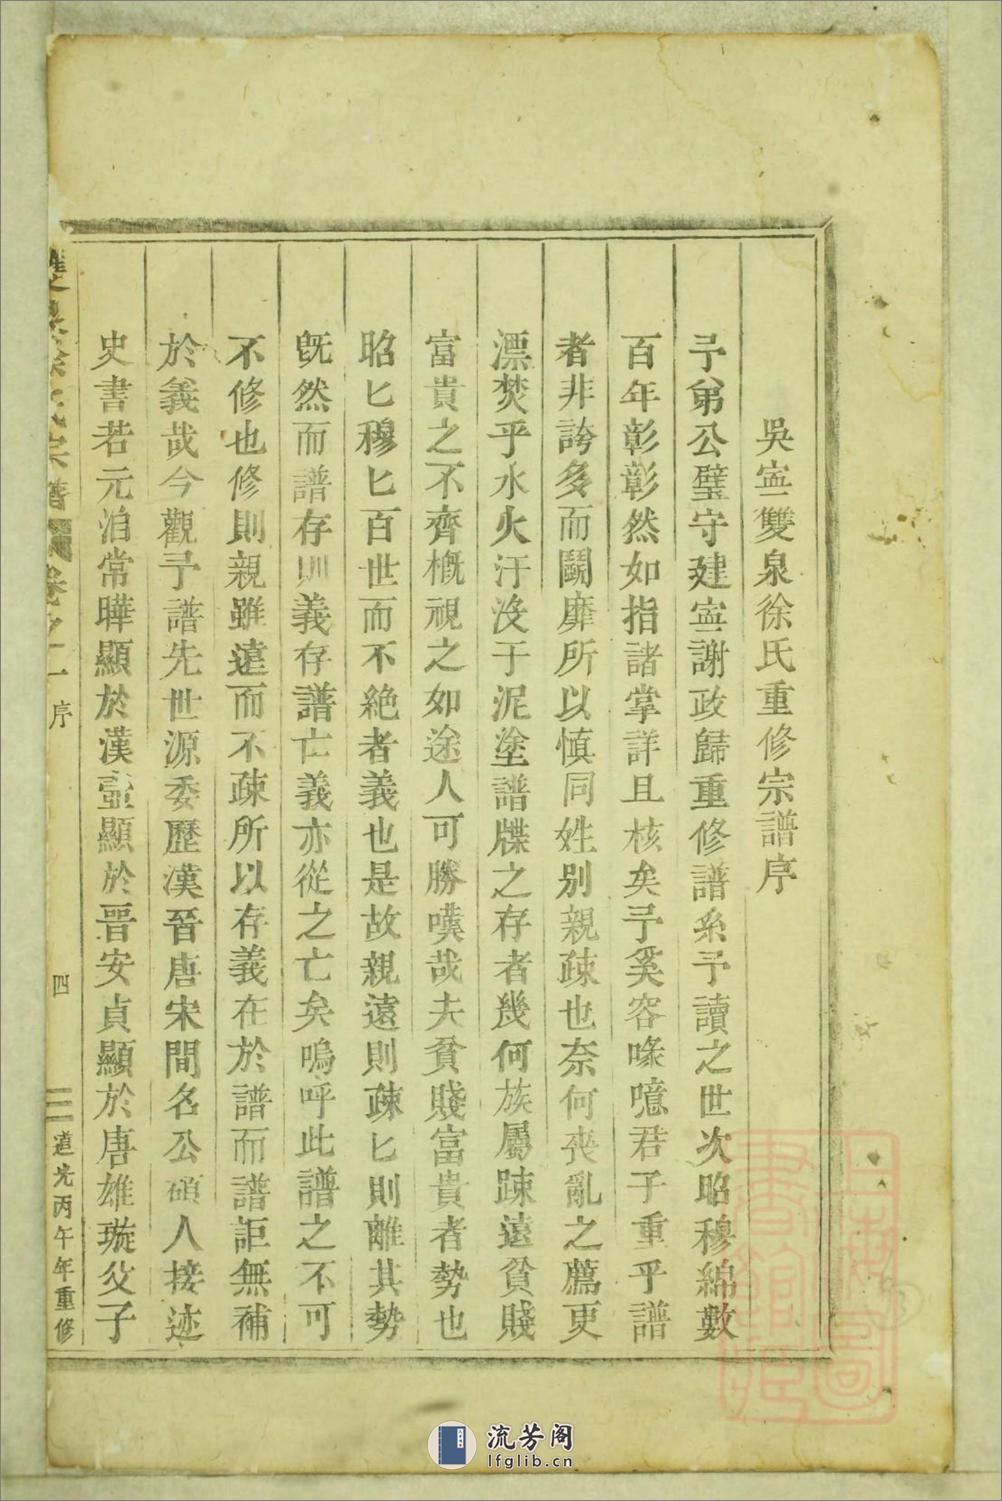 吳寍雙泉徐氏重修宗譜序
予弟公璧守建寍謝政歸重修譜系予讀之世次昭穆綿數
百年彰彰然如指諸掌詳且核矣予奚容喙噫君子重乎譜
者非誇多而鬭靡所以慎同姓别親疎也奈何喪亂之薦更
漂焚乎水火汙沒于泥塗譜牒之存者幾何族屬踈遠貧賤
富貴之不齊槪視之如途人可勝嘆哉夫貧賤富貴者勢也
昭匕穆匕百世而不絶者義也是故親遠則疎匕則離其勢
旣然而譜存則義存譜亡義亦從之亡矣嗚呼此譜之不可
不修也修則親雖遠而不疎所以存義在於譜而譜詎無補
於義哉今觀予譜先世源委歷漢晉唐宋間名公碩人接迹
史書若元洎常曄顯於漢壼顯於晉安貞顯於唐雄璇父子
雙泉徐氏宗譜 卷之一 序 四 道光丙午年重修
上海圖書館藏
流芳阁
lfglib.cn